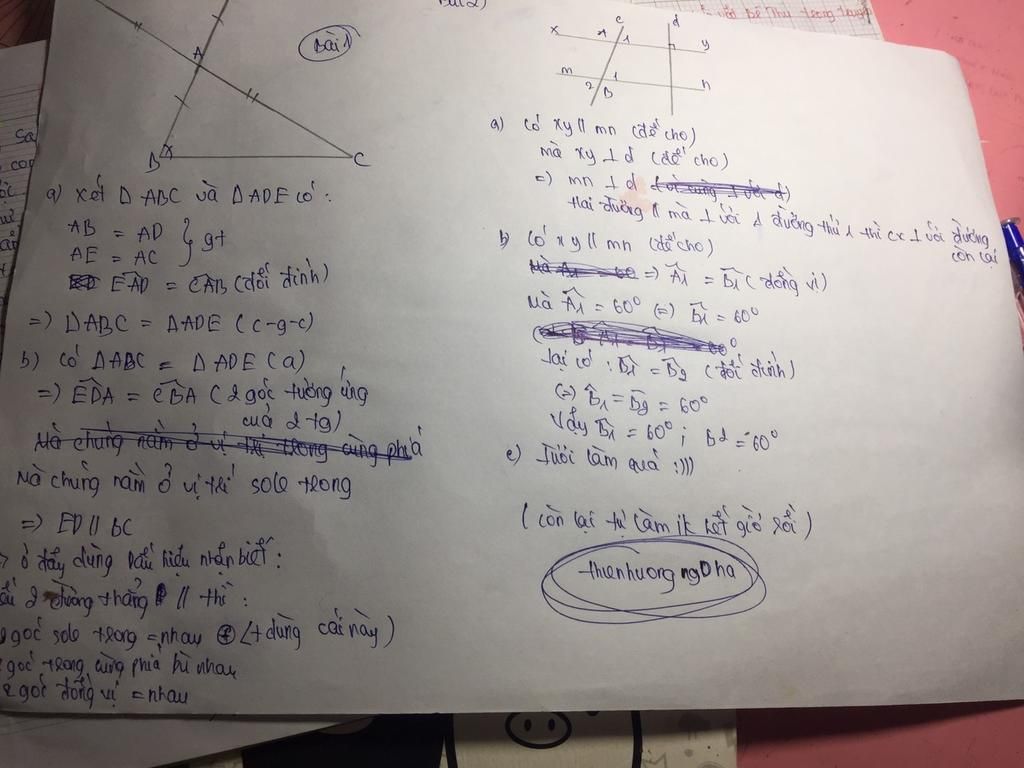 Bài 1
A
B
C
a) Xét ΔABC và ΔADE có:
AB = AD
AE = AC } gt
EAD = CAB (đối đỉnh)
=) ΔABC = ΔADE (c-g-c)
b) Có ΔABC = ΔADE (a)
=) EDA = CBA (2 góc tương ứng
của 2 tg)
Mà chúng nằm ở vị trí trong cùng phía
Mà chúng nằm ở vị trí sole trong
=) ED // BC
ở đây dùng dấu hiệu nhận biết:
2 đường thẳng // thì:
góc sole trong = nhau (+ dùng cái này)
góc trong cùng phía bù nhau
2 góc đồng vị = nhau
Bài 2)
c
d
x
A
1
y
m
1
n
2
B
a) Có xy // mn (đề cho)
mà xy ⊥ d (đề cho)
=) mn ⊥ d
Hai đường // mà 1 với 1 đường thứ 1 thì cx ⊥ với đường
còn lại
b) Có xy // mn (đề cho)
=) A1 = B1 (đồng vị)
Mà A1 = 60° (=) B1 = 60°
Lại có: B1 = B2 (đối đỉnh)
(=) B1 = B2 = 60°
Vậy B1 = 60° ; B2 = 60°
c) Lười làm quá :)))
(còn lại tự làm ik hết giờ rồi)
thienhuongngDha